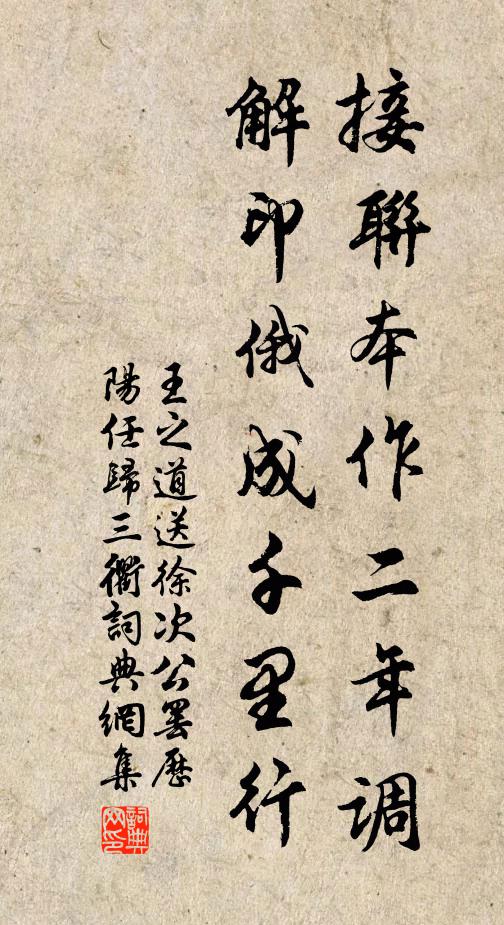 接聯本作二年調
解印俄成千里行
王之道送徐次公罢歷
陽任歸三衢詞典網集
詞典
网印